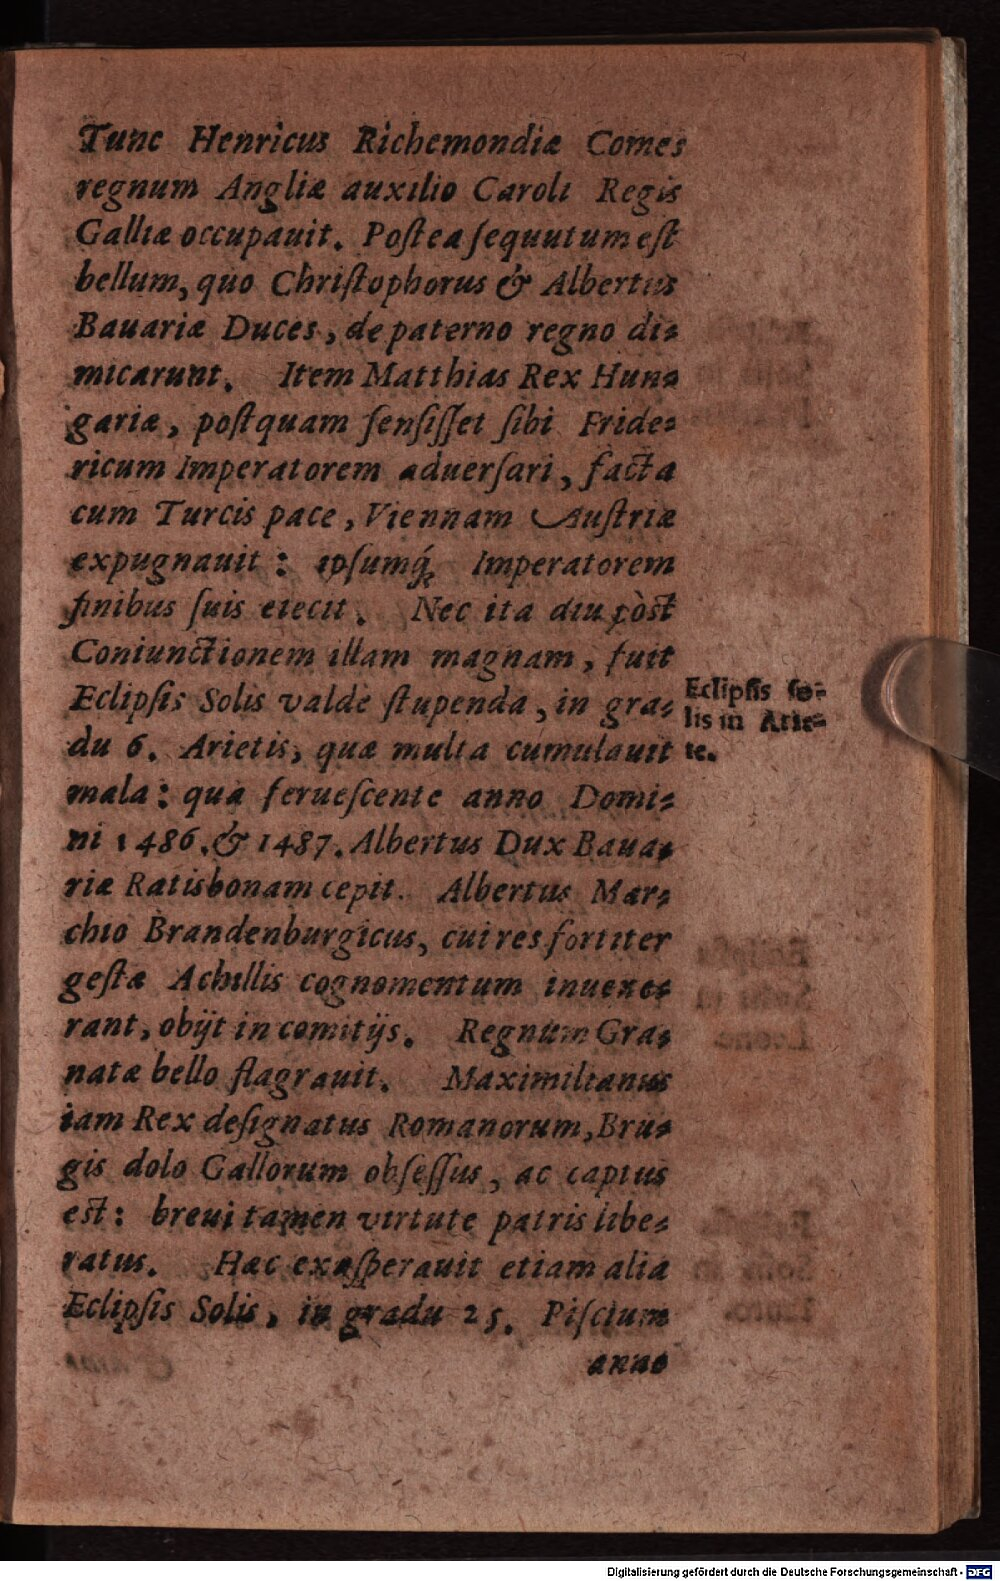 Tunc Henricus Richemondiæ Comes
regnum Angliæ auxilio Caroli Regis
Galliæ occupauit. Postea sequutum est
bellum, quo Christophorus & Albertus
Bauariæ Duces, de paterno regno di-
micarunt. Item Matthias Rex Hun-
gariæ, postquam sensisset sibi Fride-
ricum Imperatorem aduersari, facta
cum Turcis pace, Viennam Austriæ
expugnauit: ipsumq́; Imperatorem
finibus suis eiecit. Nec ita diu pòst
Coniunctionem illam magnam, fuit
Eclipsis Solis valde stupenda, in gra-
du 6. Arietis, quæ multa cumulauit
mala: qua feruescente anno Domi-
ni 1486. & 1487. Albertus Dux Baua-
riæ Ratisbonam cepit. Albertus Mar-
chio Brandenburgicus, cui res fortiter
gestæ Achillis cognomentum inuene-
rant, obijt in comitijs. Regnum Gra-
natæ bello flagrauit. Maximilianus
iam Rex designatus Romanorum, Bru-
gis dolo Gallorum obsessus, ac captus
est: breui tamen virtute patris libe-
ratus. Hæc exasperauit etiam alia
Eclipsis Solis, in gradu 25. Piscium
anno
Eclipsis so-
lis in Arie-
te.
Digitalisierung gefördert durch die Deutsche Forschungsgemeinschaft - DFG